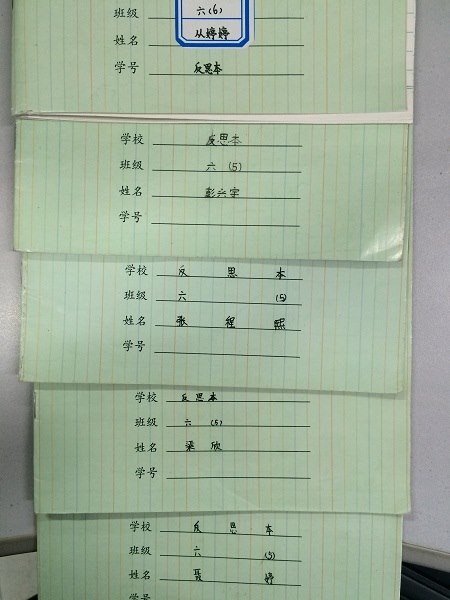 班级 六(6)
姓名 从婷婷
学号 反思本
学校 反思本
班级 六 (5)
姓名 彭兴宇
学号
学校 反 思 本
班级 六 (5)
姓名 张 程 熙
学号
学校 反思本
班级 六 (5)
姓名 梁 欣
学号
学校 反 思 本
班级 六 (5)
姓名 聂 婷
学号